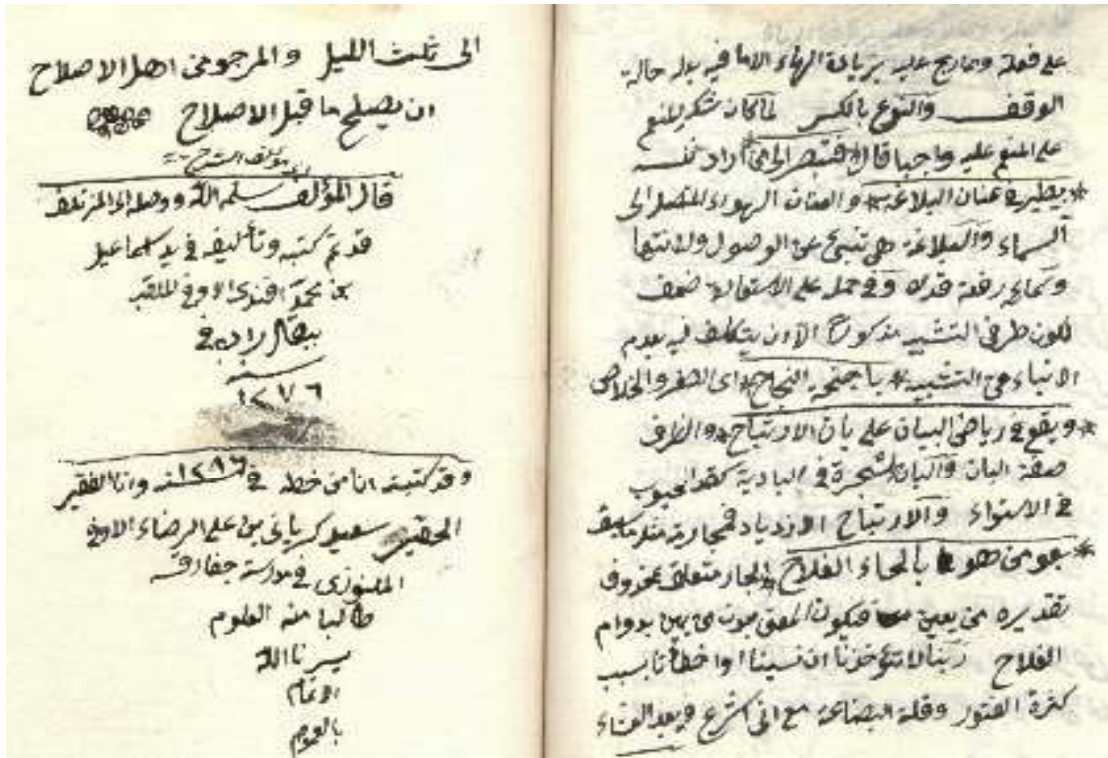 على فعلة وما ريح عليه بزيادة الهاء الا ما فيه بدل حالة
الوقف والنوع بالكسر لما كان شكر المنعم
على المنعم عليه واجبا قال اراد
يطير في عنان البلاغة والعنان الهواء المتصل الى
السماء والبلاغة هي تنبئ عن الوصول والانتهاء
رفعة قدره وفي حمله على الاستعارة ضعف
لكون طرفي التشبيه مذكورا الا ان يتكلف فيه بعدم
الانباء عن التشبيه باجنحة النجاح اى الظفر والخلاص
ويقع في رياض البيان على بان الارتياح
صفة البان والبان شجرة في البادية كقد المحبوب
في الاستواء والارتياح الازدياد مثل ما سبق
بعون من هو بالحاء الفلاح الجار متعلق بمحذوف
تقديره من يعين فيكون المعنى بعون من يعين بدوام
الفلاح ربنا لا تؤاخذنا ان نسينا او اخطأنا بسبب
كثرة الفتور وقلة البضاعة مع انى اشرع فيه بعد العشاء
الى ثلث الليل والمرجو من اهل الاصلاح
ان يصلح ما قبل الاصلاح
قال المؤلف سلمه الله ووصله الى المزتلف
قد تم كتبه وتأليفه في يد اسماعيل
بن محمد افندى الاوفى الملقب
في
سنه
١٢٧٦
وقد كتبته انا من خطه في ١٢٩٦ سنه وانا الفقير
الحقير سعيد بن على الرضاء الاوفى
في مدرسة
طالبا منه العلوم
يسرنا الله
الاتمام
بالعموم